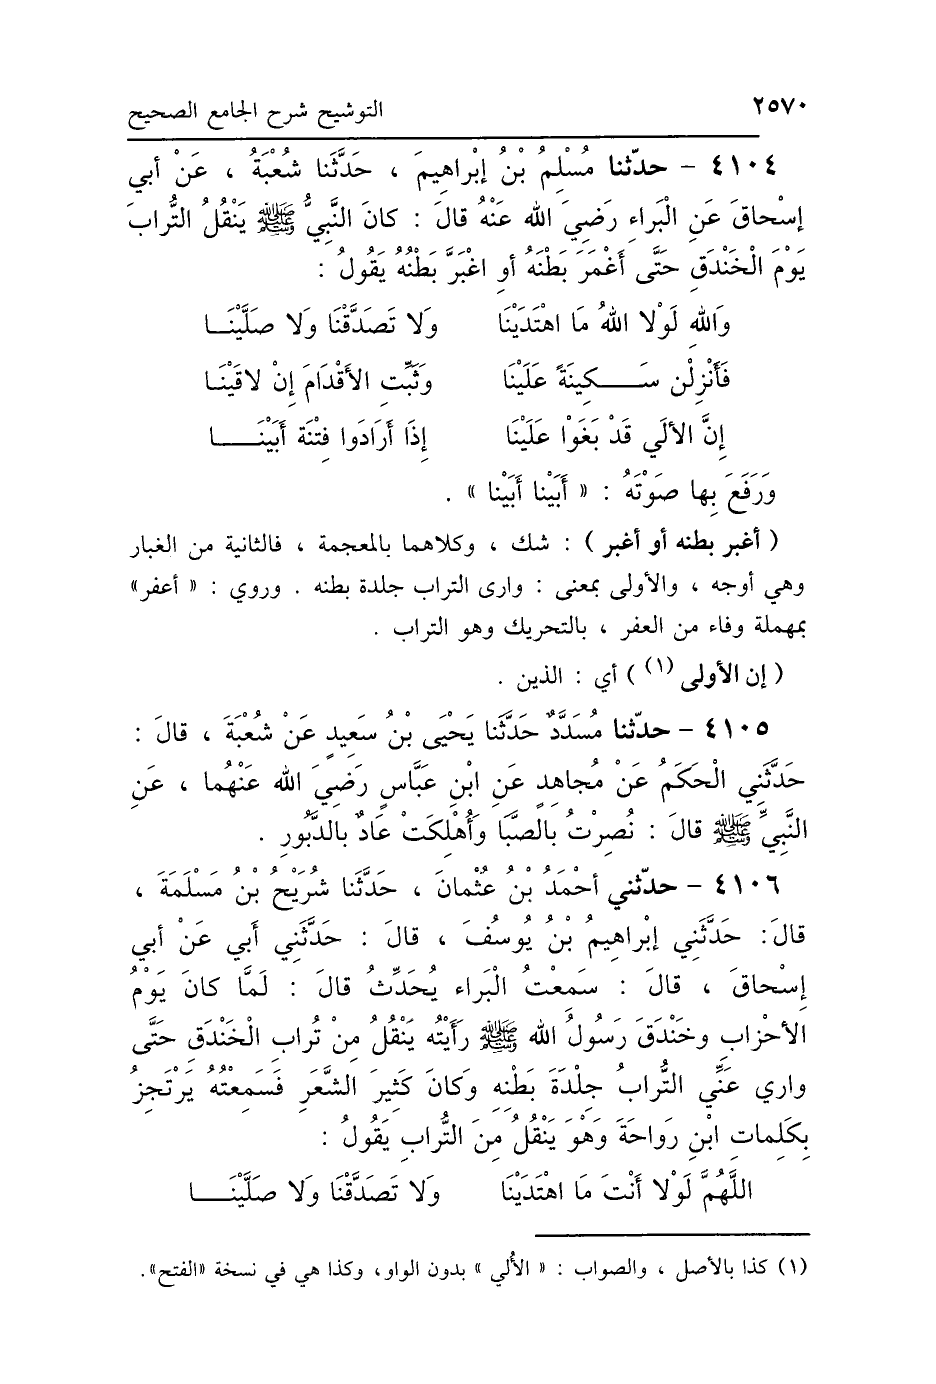 ٢٥٧٠ التوشيح شرح الجامع الصحيح
٤١٠٤ – حدّثنا مُسْلِمُ بْنُ إبْراهِيمَ ، حَدَّثَنا شُعْبَةُ ، عَنْ أبي
إسْحاقَ عَنِ الْبَراءِ رَضِيَ الله عَنْهُ قالَ : كانَ النَّبِيُّ ﷺ يَنْقُلُ التُّرابَ
يَوْمَ الْخَنْدَقِ حَتَّى أَغْمَرَ بَطْنَهُ أو اغْبَرَّ بَطْنُهُ يَقُولُ :
وَاللهِ لَوْلا اللهُ مَا اهْتَدَيْنَا وَلا تَصَدَّقْنَا وَلا صَلَّيْنَــا
فَأَنْزِلْن سَــكِينَةً عَلَيْنَا وَثَبِّتِ الأَقْدَامَ إِنْ لاقَيْنَـا
إِنَّ الألَي قَدْ بَغَوْا عَلَيْنَا إِذَا أَرَادَوا فِتْنَة أَبَيْنَــا
وَرَفَعَ بِها صَوْتَهُ : « أَبَيْنا أَبَيْنا » .
( أغبر بطنه أو أغبر ) : شك ، وكلاهما بالمعجمة ، فالثانية من الغبار
وهي أوجه ، والأولى بمعنى : وارى التراب جلدة بطنه . وروي : « أعفر»
بمهملة وفاء من العفر ، بالتحريك وهو التراب .
( إن الأولى (١) ) أي : الذين .
٤١٠٥ – حدّثنا مُسَدَّدٌ حَدَّثَنا يَحْيَى بْنُ سَعِيدٍ عَنْ شُعْبَةَ ، قالَ :
حَدَّثَنِي الْحَكَمُ عَنْ مُجاهِدٍ عَنِ ابْنِ عَبَّاسٍ رَضِيَ الله عَنْهُما ، عَنِ
النَّبِيِّ ﷺ قالَ : نُصِرْتُ بالصَّبَا وَأُهْلِكَتْ عَادٌ بالدَّبُورِ .
٤١٠٦ – حدّثني أحْمَدُ بْنُ عُثْمانَ ، حَدَّثَنا شُرَيْحُ بْنُ مَسْلَمَةَ ،
قالَ: حَدَّثَنِي إبْراهِيمُ بْنُ يُوسُفَ ، قالَ : حَدَّثَنِي أَبي عَنْ أبي
إسْحاقَ ، قالَ : سَمِعْتُ الْبَراء يُحَدِّثُ قالَ : لَمَّا كانَ يَوْمُ
الأحْزابِ وخَنْدَقَ رَسُولُ الله ﷺ رَأَيْتُه يَنْقُلُ مِنْ تُرابِ الْخَنْدَقِ حَتَّى
واري عَنِّي التُّرابُ جِلْدَةَ بَطْنِهِ وَكانَ كَثِيرَ الشَّعَرِ فَسَمِعْتُهُ يَرْتَجِزُ
بِكَلِماتِ ابْنِ رَواحَةَ وَهْوَ يَنْقُلُ مِنَ التُّرابِ يَقُولُ :
اللَّهُمَّ لَوْلا أَنْتَ مَا اهْتَدَيْنَا وَلا تَصَدَّقْنَا وَلا صَلَّيْنَــا
(١) كذا بالأصل ، والصواب : « الأُلي » بدون الواو، وكذا هي في نسخة «الفتح».